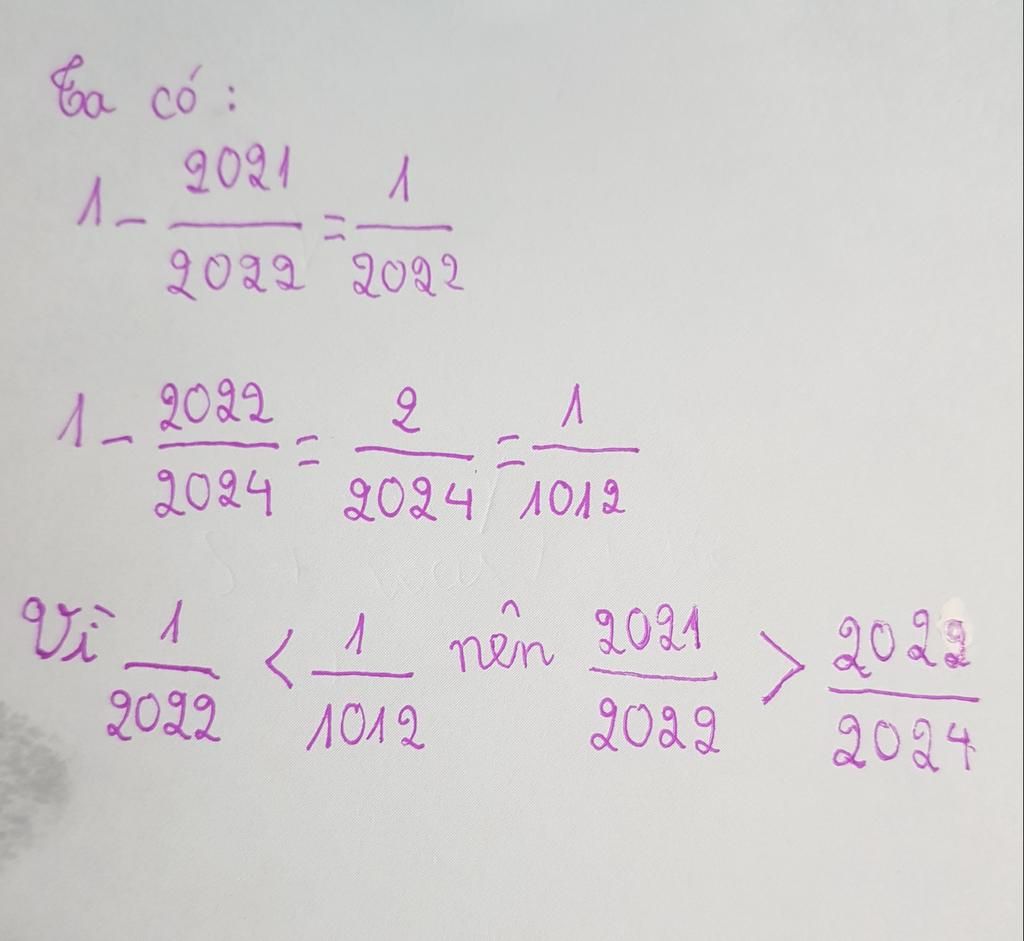 Ta có:
1 - 2021/2022 = 1/2022
1 - 2022/2024 = 2/2024 = 1/1012
Vì 1/2022 < 1/1012 nên 2021/2022 > 2022/2024